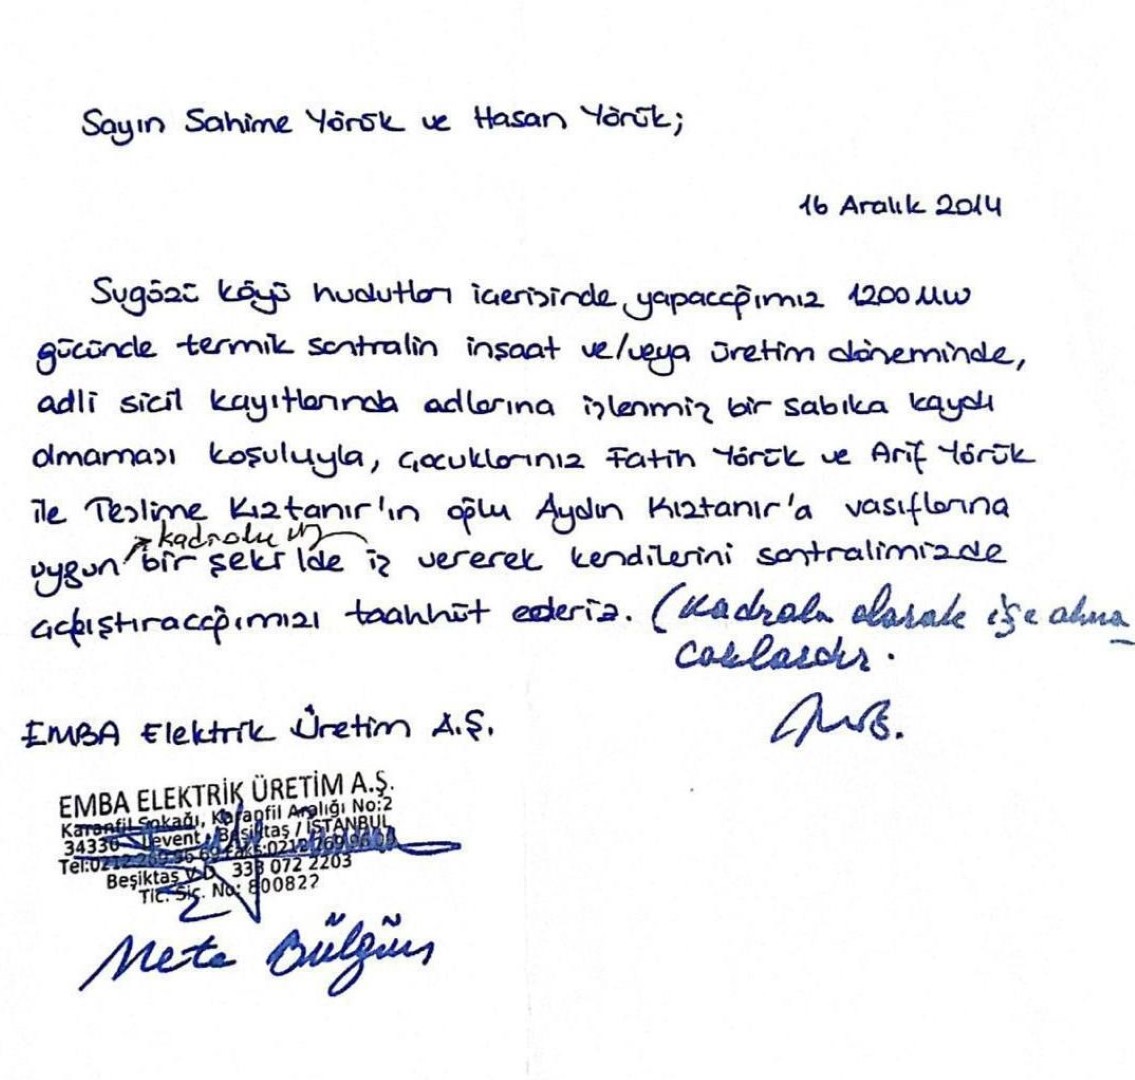 Sayın Sahime Yörük ve Hasan Yörük;
16 Aralık 2014
Sugözü köyü hudutları içerisinde yapacağımız 1200 MW
gücünde termik santralin inşaat ve/veya üretim döneminde,
adli sicil kayıtlarında adlarına işlenmiş bir sabıka kaydı
olmaması koşuluyla, çocuklarınız Fatih Yörük ve Arif Yörük
ile Teslime Kıztanır'ın oğlu Aydın Kıztanır'a vasıflarına
kadrolu
uygun bir şekilde iş vererek kendilerini santralimizde
çalıştıracağımızı taahhüt ederiz. (Kadrolu olarak işe alına
caklardır.
EMBA Elektrik Üretim A.Ş.
EMBA ELEKTRİK ÜRETİM A.Ş.
Karanfil Sokağı, Karanfil Aralığı No:2
34330 Levent / Beşiktaş / İSTANBUL
Tel:0212 269 96 Faks:0212 269 96
Beşiktaş V.D. 333 072 2203
Tic. Sic. No: 800822
Mete Bülgün